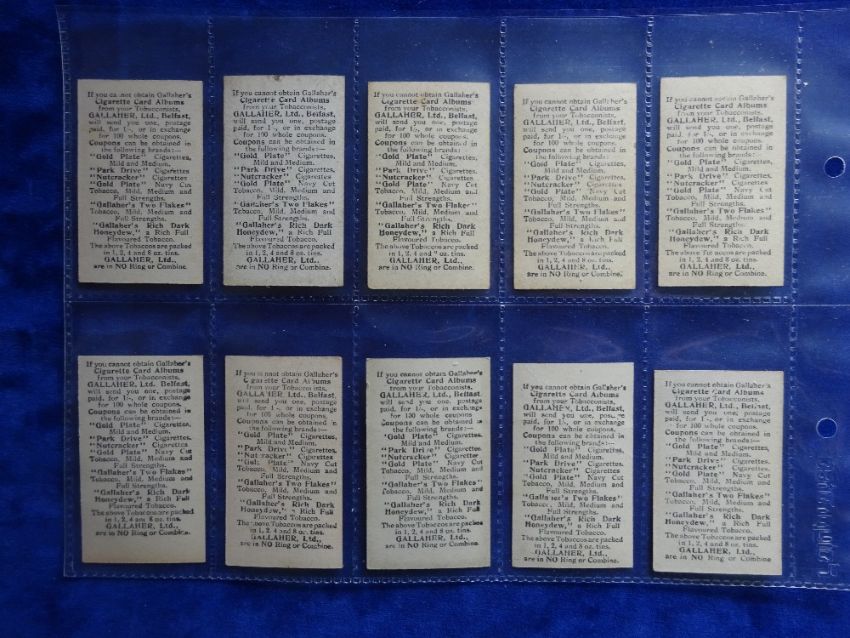 If you cannot obtain Gallaher's
Cigarette Card Albums
from your Tobacconists,
GALLAHER, Ltd., Belfast,
will send you one, postage
paid, for 1/-, or in exchange
for 100 whole coupons.
Coupons can be obtained in
the following brands:—
"Gold Plate" Cigarettes,
Mild and Medium.
"Park Drive" Cigarettes.
"Nutcracker" Cigarettes
"Gold Plate" Navy Cut
Tobacco, Mild, Medium and
Full Strengths.
"Gallaher's Two Flakes"
Tobacco, Mild, Medium and
Full Strengths.
"Gallaher's Rich Dark
Honeydew," a Rich Full
Flavoured Tobacco.
The above Tobaccos are packed
in 1, 2, 4 and 8 oz. tins.
GALLAHER, Ltd.,
are in NO Ring or Combine.
If you cannot obtain Gallaher's
Cigarette Card Albums
from your Tobacconists,
GALLAHER, Ltd., Belfast,
will send you one, postage
paid, for 1/-, or in exchange
for 100 whole coupons.
Coupons can be obtained in
the following brands:—
"Gold Plate" Cigarettes,
Mild and Medium.
"Park Drive" Cigarettes.
"Nutcracker" Cigarettes
"Gold Plate" Navy Cut
Tobacco, Mild, Medium and
Full Strengths.
"Gallaher's Two Flakes"
Tobacco, Mild, Medium and
Full Strengths.
"Gallaher's Rich Dark
Honeydew," a Rich Full
Flavoured Tobacco.
The above Tobaccos are packed
in 1, 2, 4 and 8 oz. tins.
GALLAHER, Ltd.,
are in NO Ring or Combine.
If you cannot obtain Gallaher's
Cigarette Card Albums
from your Tobacconists,
GALLAHER, Ltd., Belfast,
will send you one, postage
paid, for 1/-, or in exchange
for 100 whole coupons.
Coupons can be obtained in
the following brands:—
"Gold Plate" Cigarettes,
Mild and Medium.
"Park Drive" Cigarettes.
"Nutcracker" Cigarettes
"Gold Plate" Navy Cut
Tobacco, Mild, Medium and
Full Strengths.
"Gallaher's Two Flakes"
Tobacco, Mild, Medium and
Full Strengths.
"Gallaher's Rich Dark
Honeydew," a Rich Full
Flavoured Tobacco.
The above Tobaccos are packed
in 1, 2, 4 and 8 oz. tins.
GALLAHER, Ltd.,
are in NO Ring or Combine.
If you cannot obtain Gallaher's
Cigarette Card Albums
from your Tobacconists,
GALLAHER, Ltd., Belfast,
will send you one, postage
paid, for 1/-, or in exchange
for 100 whole coupons.
Coupons can be obtained in
the following brands:—
"Gold Plate" Cigarettes,
Mild and Medium.
"Park Drive" Cigarettes.
"Nutcracker" Cigarettes
"Gold Plate" Navy Cut
Tobacco, Mild, Medium and
Full Strengths.
"Gallaher's Two Flakes"
Tobacco, Mild, Medium and
Full Strengths.
"Gallaher's Rich Dark
Honeydew," a Rich Full
Flavoured Tobacco.
The above Tobaccos are packed
in 1, 2, 4 and 8 oz. tins.
GALLAHER, Ltd.,
are in NO Ring or Combine.
If you cannot obtain Gallaher's
Cigarette Card Albums
from your Tobacconists,
GALLAHER, Ltd., Belfast,
will send you one, postage
paid, for 1/-, or in exchange
for 100 whole coupons.
Coupons can be obtained in
the following brands:—
"Gold Plate" Cigarettes,
Mild and Medium.
"Park Drive" Cigarettes.
"Nutcracker" Cigarettes
"Gold Plate" Navy Cut
Tobacco, Mild, Medium and
Full Strengths.
"Gallaher's Two Flakes"
Tobacco, Mild, Medium and
Full Strengths.
"Gallaher's Rich Dark
Honeydew," a Rich Full
Flavoured Tobacco.
The above Tobaccos are packed
in 1, 2, 4 and 8 oz. tins.
GALLAHER, Ltd.,
are in NO Ring or Combine.
If you cannot obtain Gallaher's
Cigarette Card Albums
from your Tobacconists.
GALLAHER, Ltd. Belfast,
will send you one, postage
paid, for 1/-, or in exchange
for 100 whole coupons.
Coupons can be obtained in
the following brands:—
"Gold Plate" Cigarettes,
Mild and Medium.
"Park Drive" Cigarettes.
"Nutcracker" Cigarettes
"Gold Plate" Navy Cut
Tobacco, Mild, Medium and
Full Strengths.
"Gallaher's Two Flakes"
Tobacco, Mild, Medium and
Full Strengths.
"Gallaher's Rich Dark
Honeydew," a Rich Full
Flavoured Tobacco.
The above Tobaccos are packed
in 1, 2, 4 and 8 oz. tins.
GALLAHER, Ltd.,
are in NO Ring or Combine.
If you cannot obtain Gallaher's
Cigarette Card Albums
from your Tobacconists,
GALLAHER, Ltd., Belfast,
will send you one, postage
paid, for 1/-, or in exchange
for 100 whole coupons.
Coupons can be obtained in
the following brands:—
"Gold Plate" Cigarettes,
Mild and Medium.
"Park Drive" Cigarettes.
"Nutcracker" Cigarettes
"Gold Plate" Navy Cut
Tobacco, Mild, Medium and
Full Strengths.
"Gallaher's Two Flakes"
Tobacco, Mild, Medium and
Full Strengths.
"Gallaher's Rich Dark
Honeydew," a Rich Full
Flavoured Tobacco.
The above Tobaccos are packed
in 1, 2, 4 and 8 oz. tins.
GALLAHER, Ltd.,
are in NO Ring or Combine.
If you cannot obtain Gallaher's
Cigarette Card Albums
from your Tobacconists,
GALLAHER, Ltd., Belfast,
will send you one, postage
paid, for 1/-, or in exchange
for 100 whole coupons
Coupons can be obtained in
the following brands:—
"Gold Plate" Cigarettes,
Mild and Medium.
"Park Drive" Cigarettes.
"Nutcracker" Cigarettes
"Gold Plate" Navy Cut
Tobacco, Mild, Medium and
Full Strengths.
"Gallaher's Two Flakes"
Tobacco, Mild, Medium and
Full Strengths.
"Gallaher's Rich Dark
Honeydew," a Rich Full
Flavoured Tobacco.
The above Tobaccos are packed
in 1, 2, 4 and 8 oz. tins.
GALLAHER, Ltd.,
are in NO Ring or Combine.
If you cannot obtain Gallaher's
Cigarette Card Albums
from your Tobacconists,
GALLAHER, Ltd., Belfast,
will send you one, postage
paid, for 1/-, or in exchange
for 100 whole coupons.
Coupons can be obtained in
the following brands:—
"Gold Plate" Cigarettes,
Mild and Medium.
"Park Drive" Cigarettes.
"Nutcracker" Cigarettes
"Gold Plate" Navy Cut
Tobacco, Mild, Medium and
Full Strengths.
"Gallaher's Two Flakes"
Tobacco, Mild, Medium and
Full Strengths.
"Gallaher's Rich Dark
Honeydew," a Rich Full
Flavoured Tobacco.
The above Tobaccos are packed
in 1, 2, 4 and 8 oz. tins.
GALLAHER, Ltd.,
are in NO Ring or Combine.
If you cannot obtain Gallaher's
Cigarette Card Albums
from your Tobacconists,
GALLAHER, Ltd., Belfast,
will send you one, postage
paid, for 1/-, or in exchange
for 100 whole coupons.
Coupons can be obtained in
the following brands:—
"Gold Plate" Cigarettes,
Mild and Medium.
"Park Drive" Cigarettes.
"Nutcracker" Cigarettes
"Gold Plate" Navy Cut
Tobacco, Mild, Medium and
Full Strengths.
"Gallaher's Two Flakes"
Tobacco, Mild, Medium and
Full Strengths.
"Gallaher's Rich Dark
Honeydew," a Rich Full
Flavoured Tobacco.
The above Tobaccos are packed
in 1, 2, 4 and 8 oz. tins.
GALLAHER, Ltd.,
are in NO Ring or Combine